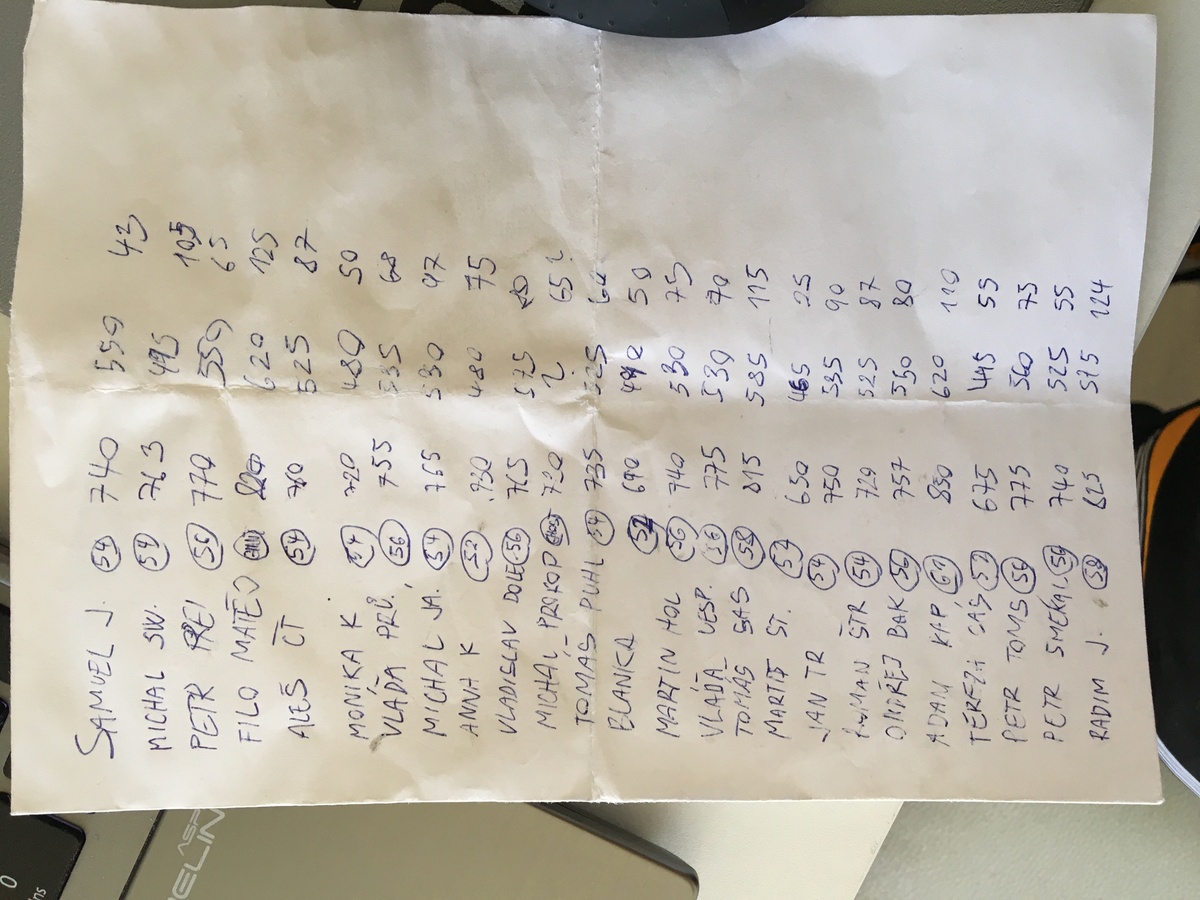 SAMUEL J. 54 740 550 43
MICHAL SW. 54 763 495 105
PETR PREI 56 770 550 65
FILO MATĚJ 620 125
ALEŠ ČT 54 760 525 87
MONIKA K 54 720 480 50
VLÁĎA PRŮ. 56 755 535 68
MICHAL JA. 54 765 530 47
ANNA K 52 730 480 75
VLADISLAV DOLE 56 765 575 80
MICHAL PROKOP 730 ? 65?
TOMÁŠ PUHL 54 735 525 60
BLANKA 52 690 490 50
MARTIN HOL 56 740 530 75
VLÁĎA VESP. 56 775 530 70
TOMÁŠ SAS 58 815 585 115
MARTIN ST. 54 650 465 25
JAN TR 54 750 535 90
ROMAN ŠTR 54 720 525 87
ONDŘEJ BAK 56 757 550 80
ADAM KAP 61 850 620 110
TEREZA CÁS 51 675 445 55
PETR TOMS 56 775 560 75
PETR SMEKAL. 56 740 525 55
RADIM J. 58 825 575 124
ASP
ELIN
0
Ins